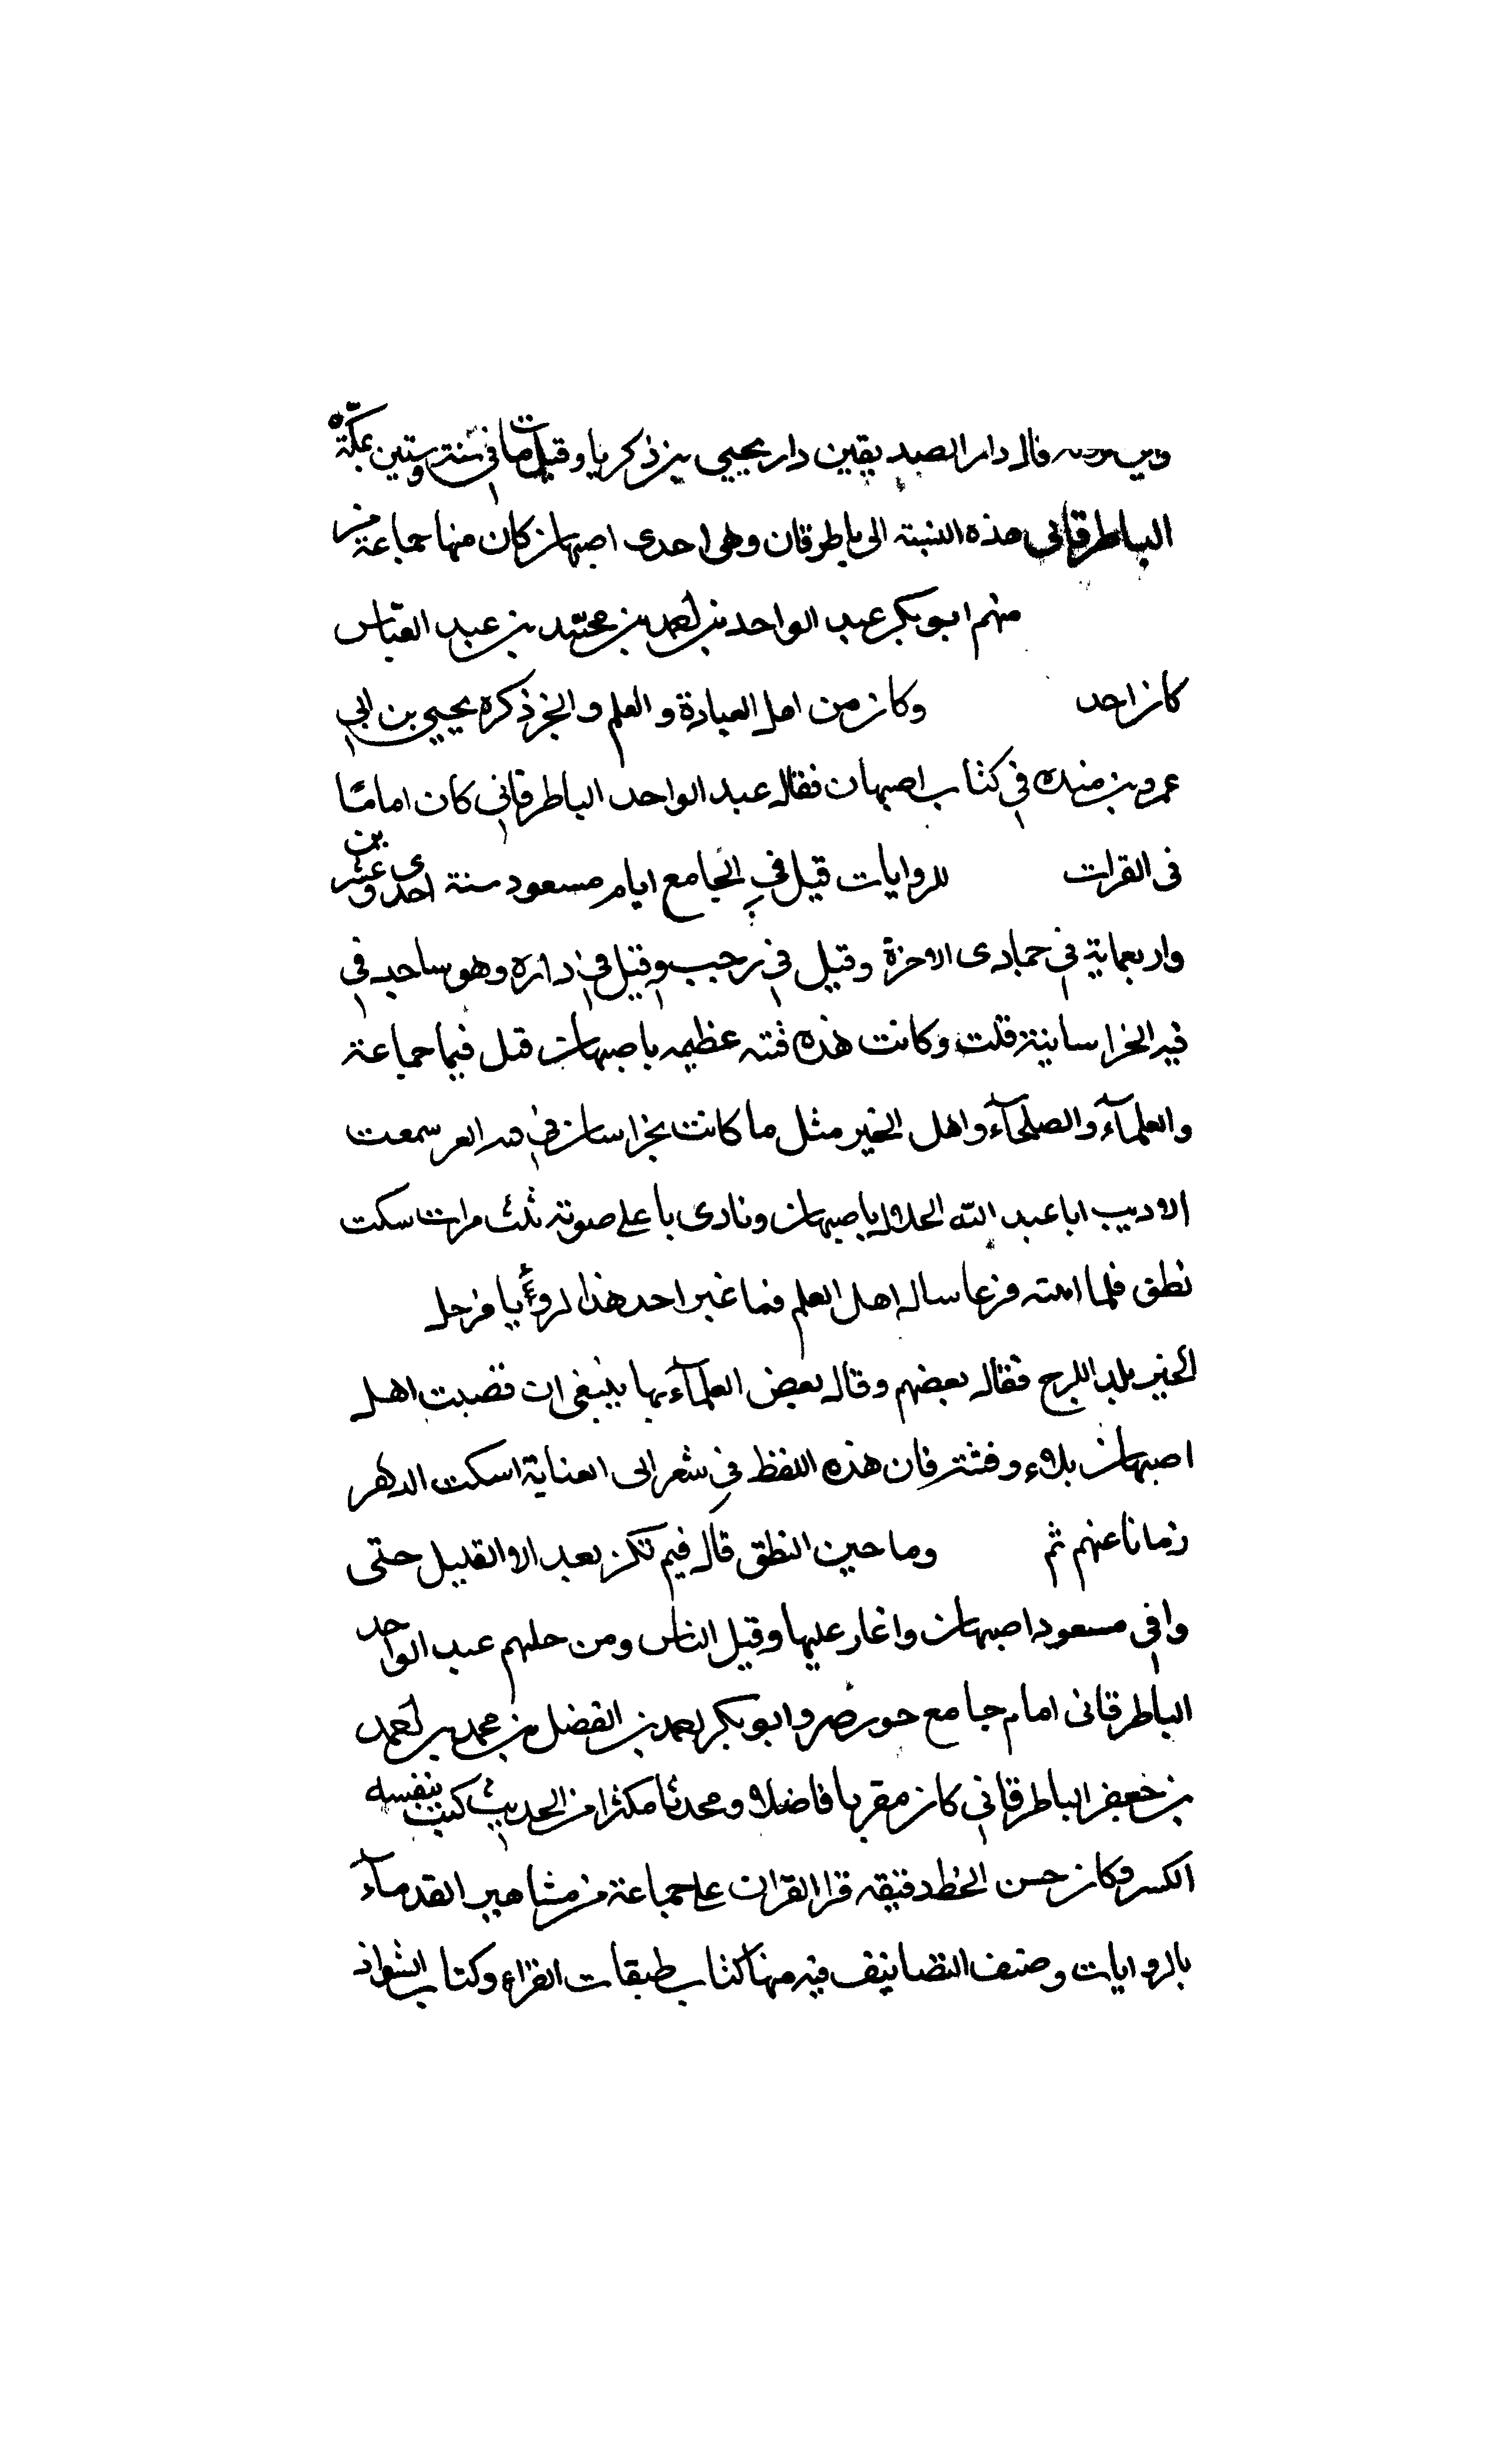 قال دار الصديقين دار يحيي بن زكريا وقيل مات في سنة وستين بمكة
الباطرقاني هذه النسبة الى باطرقان وهى احدى اصبهان كان منها جماعة من
منهم ابو بكر عبد الواحد بن احمد بن محمد بن عبد العباس
كان احد وكان من اهل العبادة و العلم و الخير ذكره يحيي بن ابي
عمرو بن منده في كتاب اصبهان فقال عبد الواحد الباطرقاني كان اماما
فى القرات للروايات قيل في الجامع ايام مسعود سنة احدى وعشرين
واربعماية في جمادى الاخرة وقيل في رجب وقيل في داره وهو ساجد في
فيه الخراسانية قلت وكانت هذه فتنه عظيمه باصبهان قتل فيها جماعة
والعلمآء والصلحآء واهل الخير مثل ما كانت بخراسان في سمعت
الاديب ابا عبد الله الخلال باصبهان ونادى باعلى صوته ثلث مرات سكت
نطق فلما فزعا سال اهل العلم فما عبر احد هذا لرؤيا فرحل
الخبر بلد الكرج فقال بعضهم وقال بعض العلمآء بها ينبغى ان تصيب اهل
اصبهان بلاء وفتنة فان هذه اللفظ في شعر ابى العتاهية اسكت الدهر
زمانا عنهم ثم وما حين النطق قال فيم تكن بعد الا القليل حتى
وافى مسعود اصبهان واغار عليها وقيل الناس ومن حلهم عبد الواحد
الباطرقانى امام جامع وابو بكر احمد بن الفضل بن محمد بن احمد
بن جعفر الباطرقاني كان مقريا فاضلا ومحدثا مكثرا من الحديث كتب بنفسه
الكسر وكان حسن الخط دقيقه قرا القران على جماعة من مشاهير القدمآء
بالروايات وصنف التصانيف فيه منها كتاب طبقات القراء وكتاب الشواذ